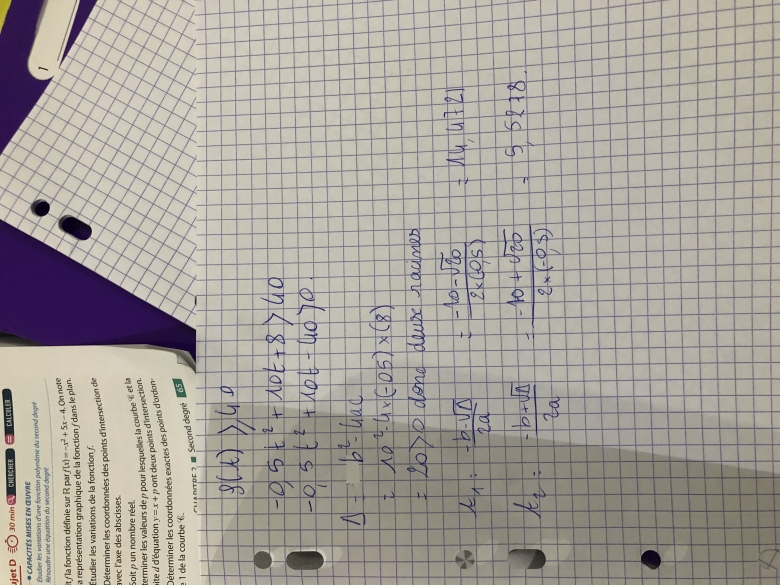 1
ujet D 30 min CHERCHER CALCULER
• CAPACITÉS MISES EN ŒUVRE
Étudier les variations d'une fonction polynôme du second degré
Résoudre une équation du second degré
it f la fonction définie sur R par f(x) = -x² + 5x - 4. On note
a représentation graphique de la fonction f dans le plan.
Étudier les variations de la fonction f.
Déterminer les coordonnées des points d'intersection de
avec l'axe des abscisses.
Soit p un nombre réel.
terminer les valeurs de p pour lesquelles la courbe 𝒞 et la
ite d d'équation y = x + p ont deux points d'intersection.
Déterminer les coordonnées exactes des points d'ordon-
e 1 de la courbe 𝒞.
CHAPITRE 2 ■ Second degré 65
g(t) ⩾ 40
-0,5t² + 10t + 8 ⩾ 40
-0,5t² + 10t - 40 ⩾ 0.
Δ = b² - 4ac
= 10² - 4×(-0,5)×(8)
= 20 > 0 donc deux racines
t₁ = (-b-√Δ)/2a = (-10-√20)/(2×(-0,5)) = 14,4721
t₂ = (-b+√Δ)/2a = (-10+√20)/(2×(-0,5)) = 5,5278.